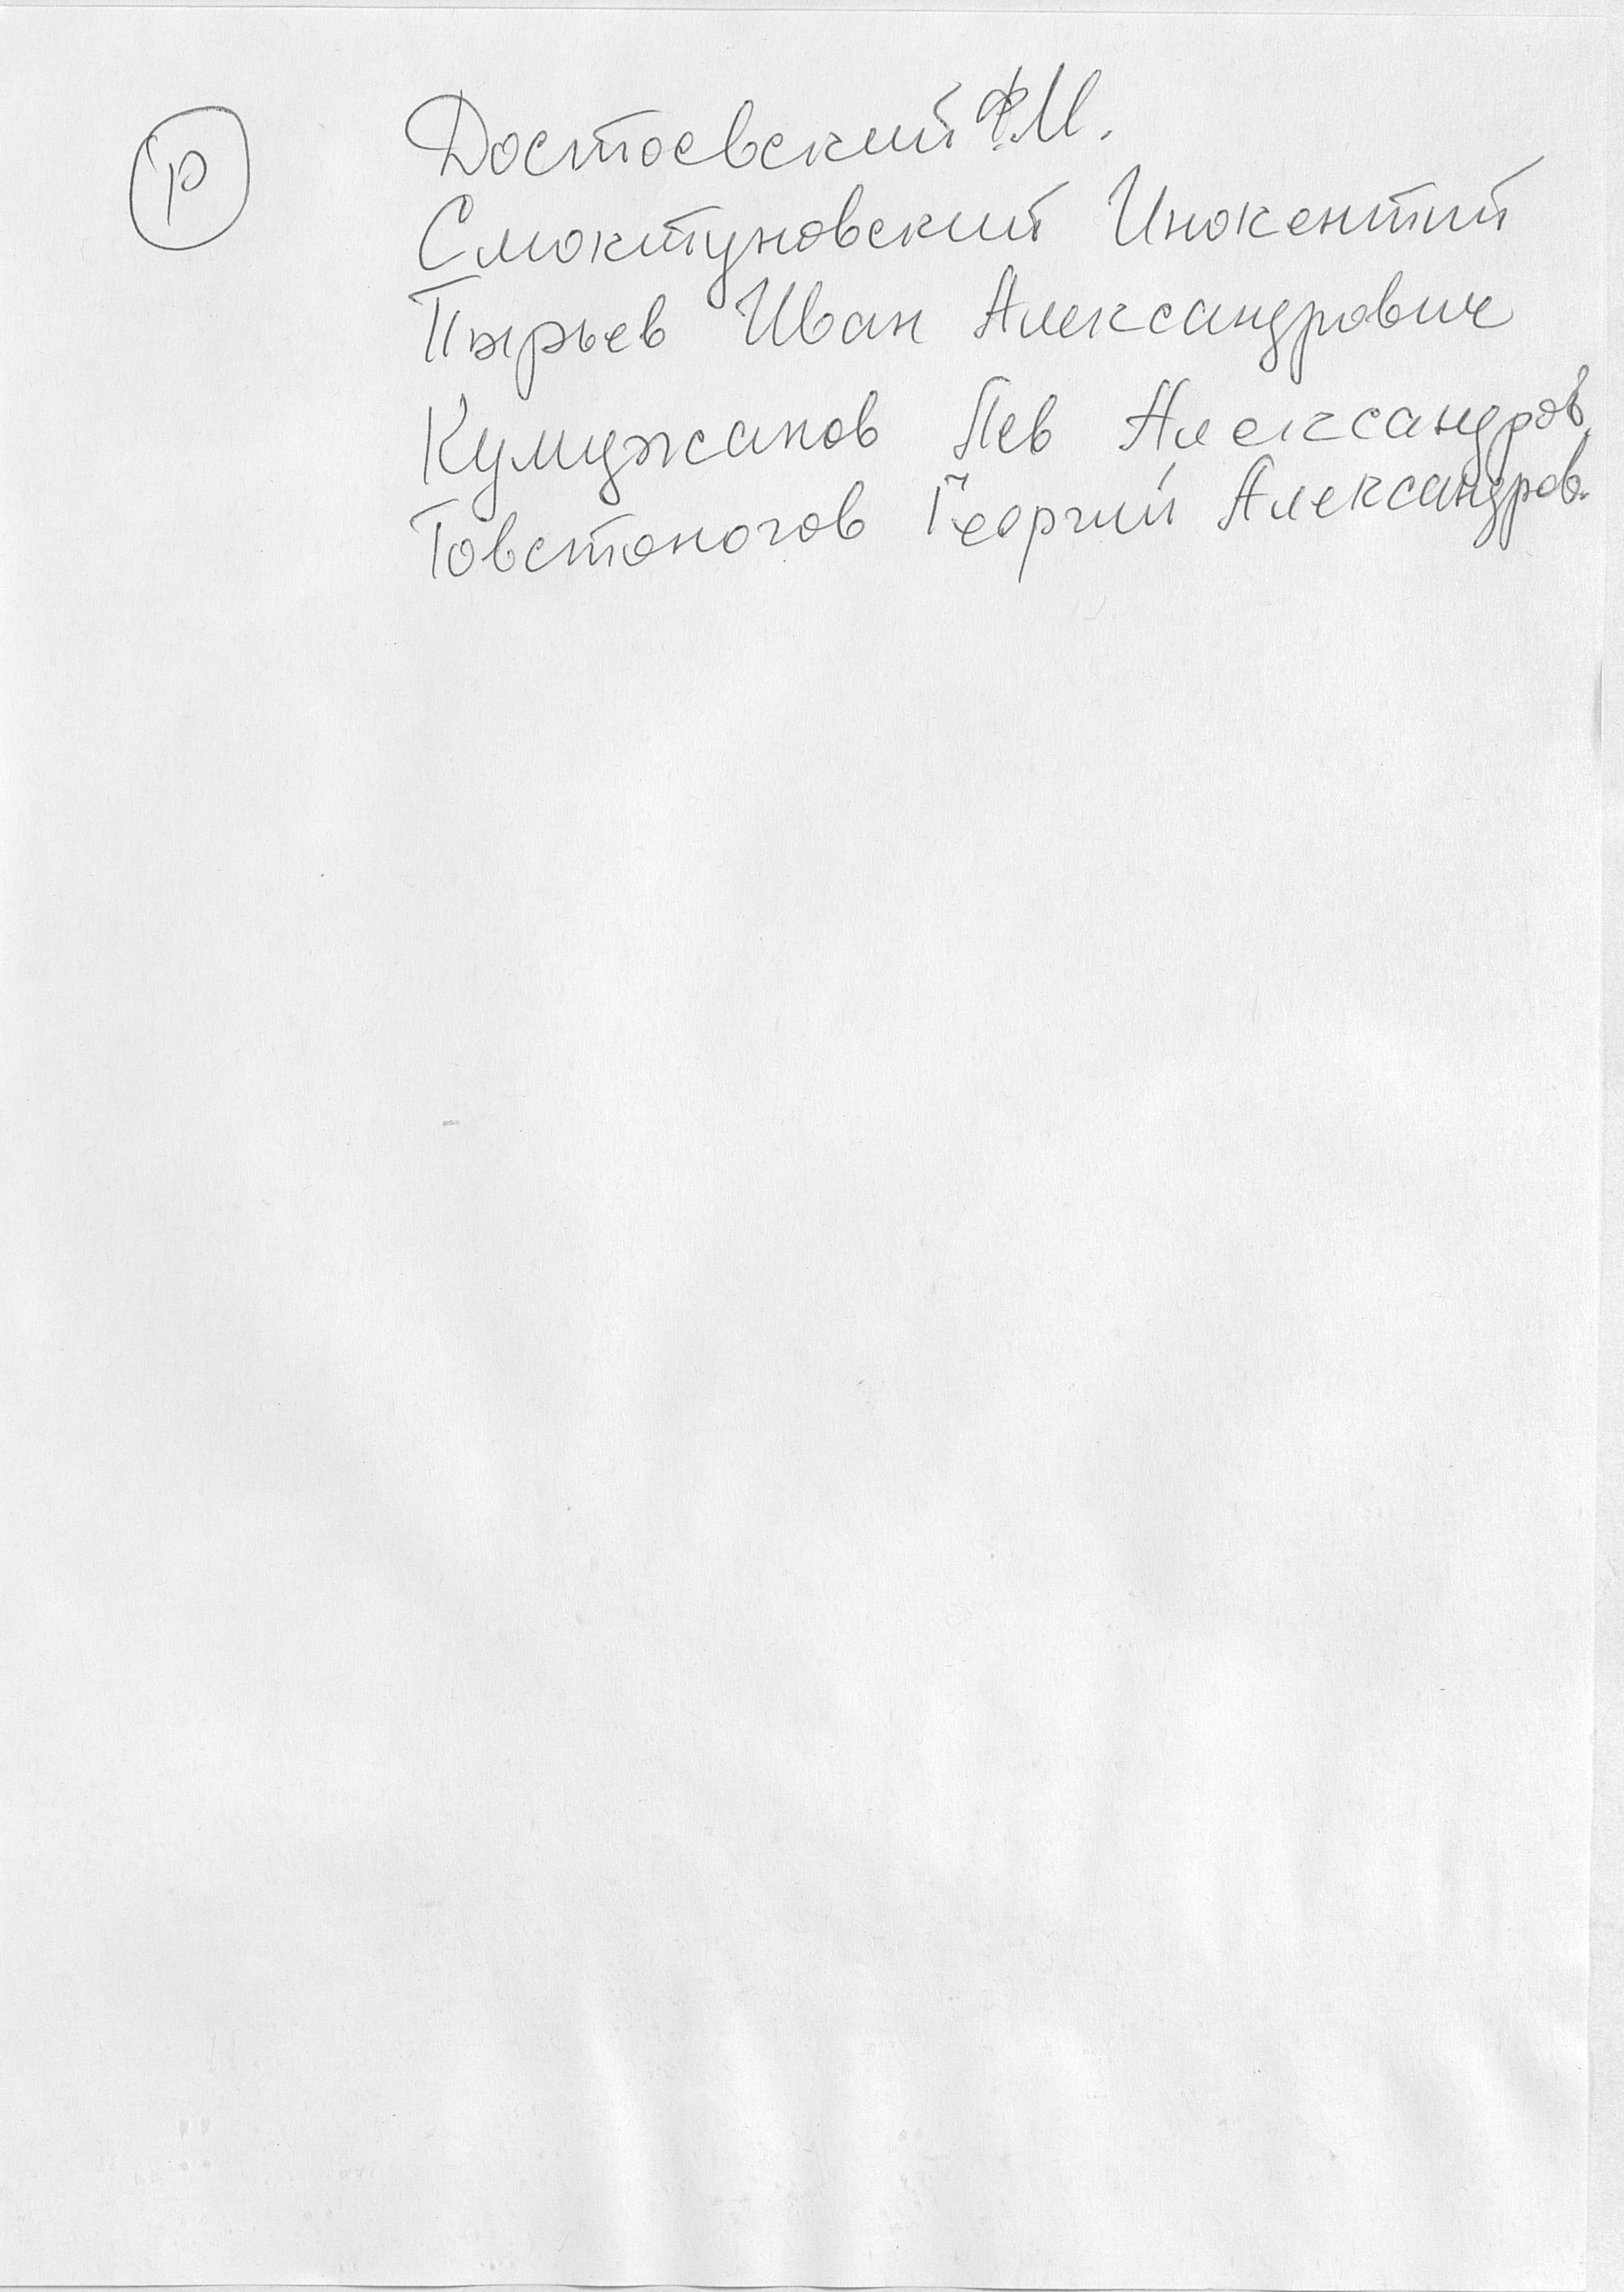 Р
Достоевский Ф.М.
Смоктуновский Инокентий
Пырьев Иван Александрович
Кумужанов Лев Александров.
Товстоногов Георгий Александров.